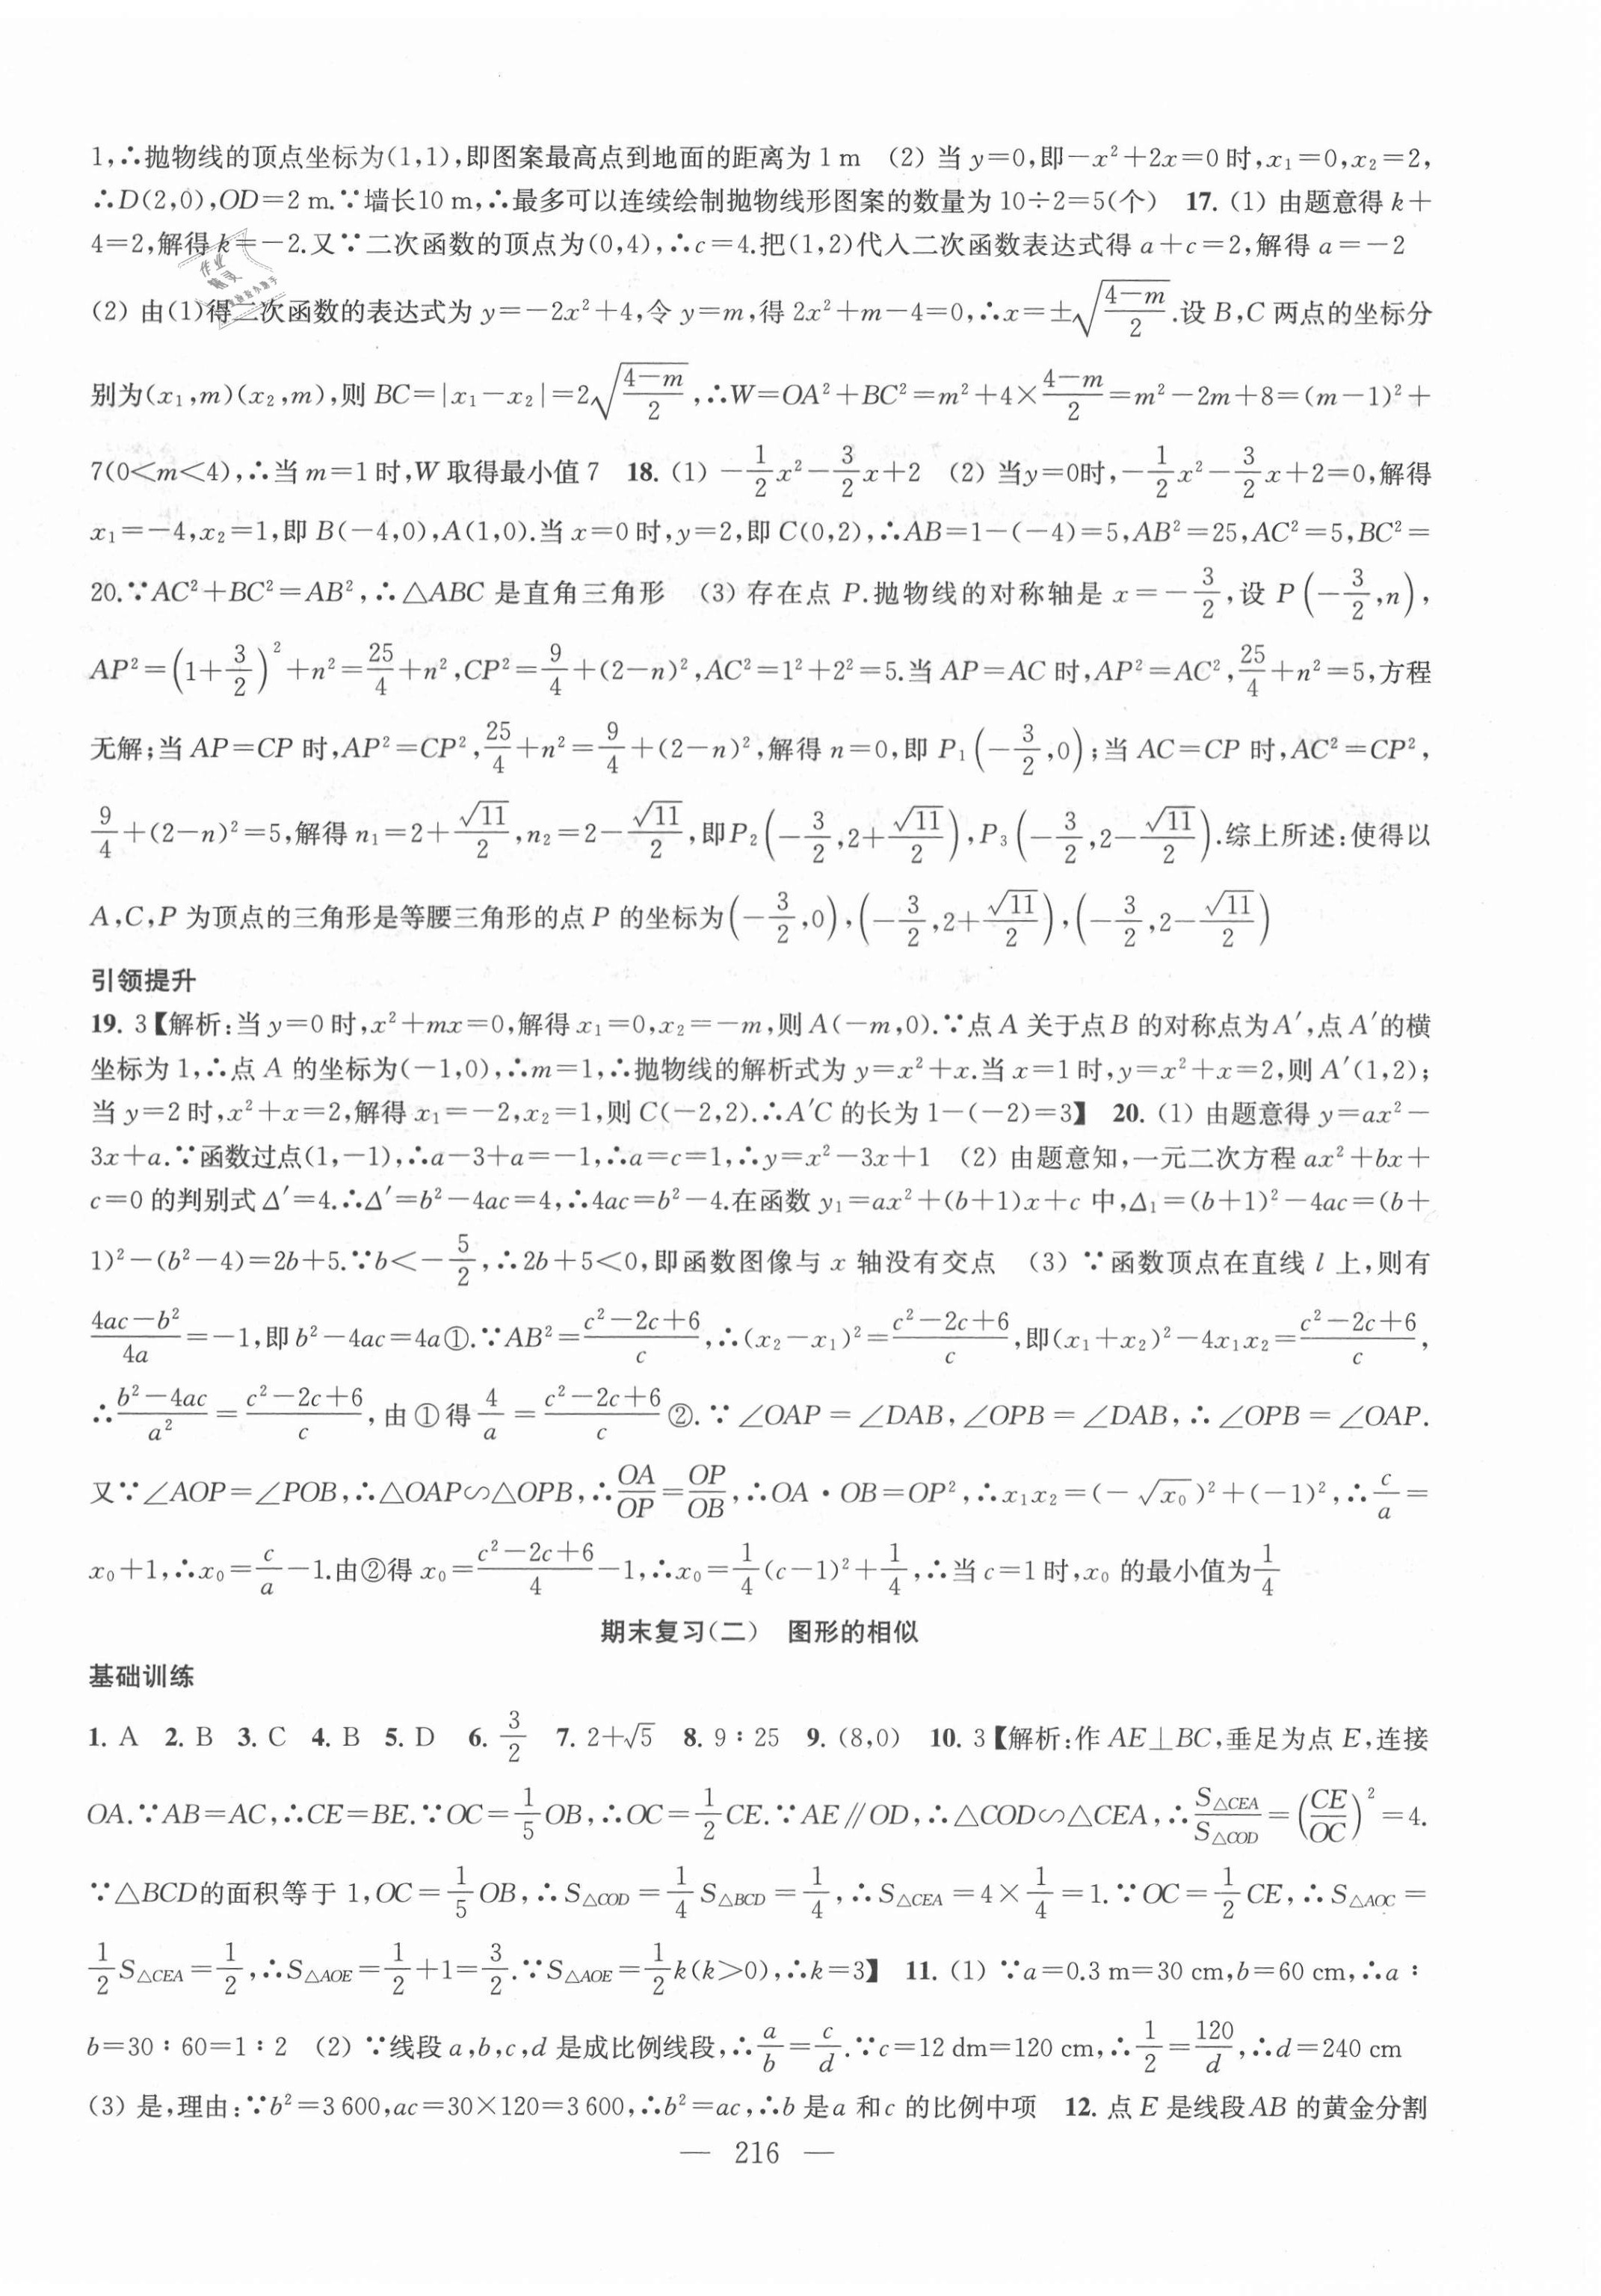 1,∴抛物线的顶点坐标为(1,1),即图案最高点到地面的距离为 1 m (2) 当 y=0,即−x²+2x=0 时,x₁=0,x₂=2,
∴D(2,0),OD=2 m.∵墙长10 m,∴最多可以连续绘制抛物线形图案的数量为 10÷2=5(个) 17. (1) 由题意得 k+
4=2,解得 k=−2.又∵二次函数的顶点为(0,4),∴c=4.把(1,2)代入二次函数表达式得 a+c=2,解得 a=−2
(2) 由(1)得二次函数的表达式为 y=−2x²+4,令 y=m,得 2x²+m−4=0,∴x=±√((4−m)/2).设 B,C 两点的坐标分
别为(x₁,m)(x₂,m),则 BC=|x₁−x₂|=2√((4−m)/2),∴W=OA²+BC²=m²+4×(4−m)/2=m²−2m+8=(m−1)²+
7(0<m<4),∴当 m=1 时,W 取得最小值 7 18. (1) −1/2x²−3/2x+2 (2) 当y=0时,−1/2x²−3/2x+2=0,解得
x₁=−4,x₂=1,即 B(−4,0),A(1,0).当 x=0 时,y=2,即 C(0,2),∴AB=1−(−4)=5,AB²=25,AC²=5,BC²=
20.∵AC²+BC²=AB²,∴△ABC 是直角三角形 (3) 存在点 P.抛物线的对称轴是 x=−3/2,设 P(−3/2,n),
AP²=(1+3/2)²+n²=25/4+n²,CP²=9/4+(2−n)²,AC²=1²+2²=5.当 AP=AC 时,AP²=AC²,25/4+n²=5,方程
无解;当 AP=CP 时,AP²=CP²,25/4+n²=9/4+(2−n)²,解得 n=0,即 P₁(−3/2,0);当 AC=CP 时,AC²=CP²,
9/4+(2−n)²=5,解得 n₁=2+√11/2,n₂=2−√11/2,即P₂(−3/2,2+√11/2),P₃(−3/2,2−√11/2).综上所述:使得以
A,C,P 为顶点的三角形是等腰三角形的点 P 的坐标为(−3/2,0),(−3/2,2+√11/2),(−3/2,2−√11/2)
引领提升
19. 3【解析:当 y=0 时,x²+mx=0,解得 x₁=0,x₂=−m,则 A(−m,0).∵点 A 关于点 B 的对称点为A′,点 A′的横
坐标为 1,∴点 A 的坐标为(−1,0),∴m=1,∴抛物线的解析式为 y=x²+x.当 x=1 时,y=x²+x=2,则 A′(1,2);
当 y=2 时,x²+x=2,解得 x₁=−2,x₂=1,则 C(−2,2).∴A′C 的长为 1−(−2)=3】 20. (1) 由题意得 y=ax²−
3x+a.∵函数过点(1,−1),∴a−3+a=−1,∴a=c=1,∴y=x²−3x+1 (2) 由题意知,一元二次方程 ax²+bx+
c=0 的判别式 Δ′=4.∴Δ′=b²−4ac=4,∴4ac=b²−4.在函数 y₁=ax²+(b+1)x+c 中,Δ₁=(b+1)²−4ac=(b+
1)²−(b²−4)=2b+5.∵b<−5/2,∴2b+5<0,即函数图像与 x 轴没有交点 (3) ∵函数顶点在直线 l 上,则有
(4ac−b²)/4a=−1,即 b²−4ac=4a①.∵AB²=(c²−2c+6)/c,∴(x₂−x₁)²=(c²−2c+6)/c,即(x₁+x₂)²−4x₁x₂=(c²−2c+6)/c,
∴(b²−4ac)/a²=(c²−2c+6)/c,由①得4/a=(c²−2c+6)/c②.∵∠OAP=∠DAB,∠OPB=∠DAB,∴∠OPB=∠OAP.
又∵∠AOP=∠POB,∴△OAP∽△OPB,∴OA/OP=OP/OB,∴OA·OB=OP²,∴x₁x₂=(−√x₀)²+(−1)²,∴c/a=
x₀+1,∴x₀=c/a−1.由②得 x₀=(c²−2c+6)/4−1,∴x₀=1/4(c−1)²+1/4,∴当 c=1 时,x₀ 的最小值为1/4
期末复习(二) 图形的相似
基础训练
1. A 2. B 3. C 4. B 5. D 6. 3/2 7. 2+√5 8. 9∶25 9. (8,0) 10. 3【解析:作 AE⊥BC,垂足为点 E,连接
OA.∵AB=AC,∴CE=BE.∵OC=1/5OB,∴OC=1/2CE.∵AE∥OD,∴△COD∽△CEA,∴S△CEA/S△COD=(CE/OC)²=4.
∵△BCD的面积等于 1,OC=1/5OB,∴S△COD=1/4S△BCD=1/4,∴S△CEA=4×1/4=1.∵OC=1/2CE,∴S△AOC=
1/2S△CEA=1/2,∴S△AOE=1/2+1=3/2.∵S△AOE=1/2k(k>0),∴k=3】 11. (1) ∵a=0.3 m=30 cm,b=60 cm,∴a∶
b=30∶60=1∶2 (2) ∵线段 a,b,c,d 是成比例线段,∴a/b=c/d.∵c=12 dm=120 cm,∴1/2=120/d,∴d=240 cm
(3) 是,理由:∵b²=3 600,ac=30×120=3 600,∴b²=ac,∴b 是 a 和 c 的比例中项 12. 点 E 是线段AB 的黄金分割
— 216 —